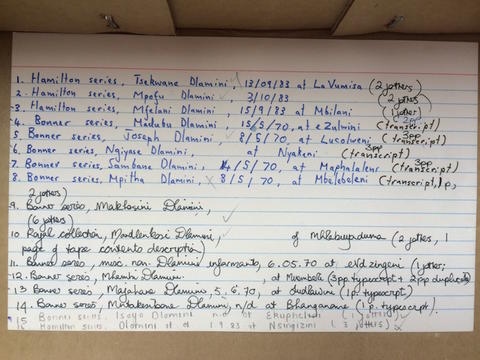 1. Hamilton series, Tsekwane Dlamini, 13/09/83 at LaVumisa (2 jotters)
2. Hamilton series, Mpofu Dlamini 3/10/83 (2 jotters)
3. Hamilton series, Mfelani Dlamini, 15/9/83 at Mbilani (1 jotter)
4. Bonner series, Madubu Dlamini, 15/5/70, at eZulwini (transcript)
5. Bonner series, Joseph Dlamini, 8/5/70, at Lusolweni (3pp transcript)
6. Bonner series, Ngiyase Dlamini, at Nyakeni (3pp transcript)
7. Bonner series, Sambane Dlamini, 4/5/70, at Maphalaleni (3pp transcript)
8. Bonner series, Mpitha Dlamini, 8/5/70, at Mbelebeleni (transcript, 1p,
2 jotters)
9. Bonner series, Makhosini Dlamini,
(6 jotters)
10. Royal collection, Dlamini, of (2 jotters, 1
page of tape contents description)
11. Bonner series, misc. non-Dlamini informants, 6.05.70 at eVdzingeni (1 jotter;
12. Bonner series, Mhambi Dlamini at (3pp typescript + 2pp duplicate)
13. Bonner series, Majahane Dlamini, 5.6.70, at dudlawini (1p. typescript)
14. Bonner series, Dlamini, n/d at Bhanganane (1p. typescript)
15 Bonner series Isaya Dlamini n.d at Ekupheleni (1 jotter)
Hamilton series, Dlamini et al 1 9 83 at Nsingizini (3 jotters)